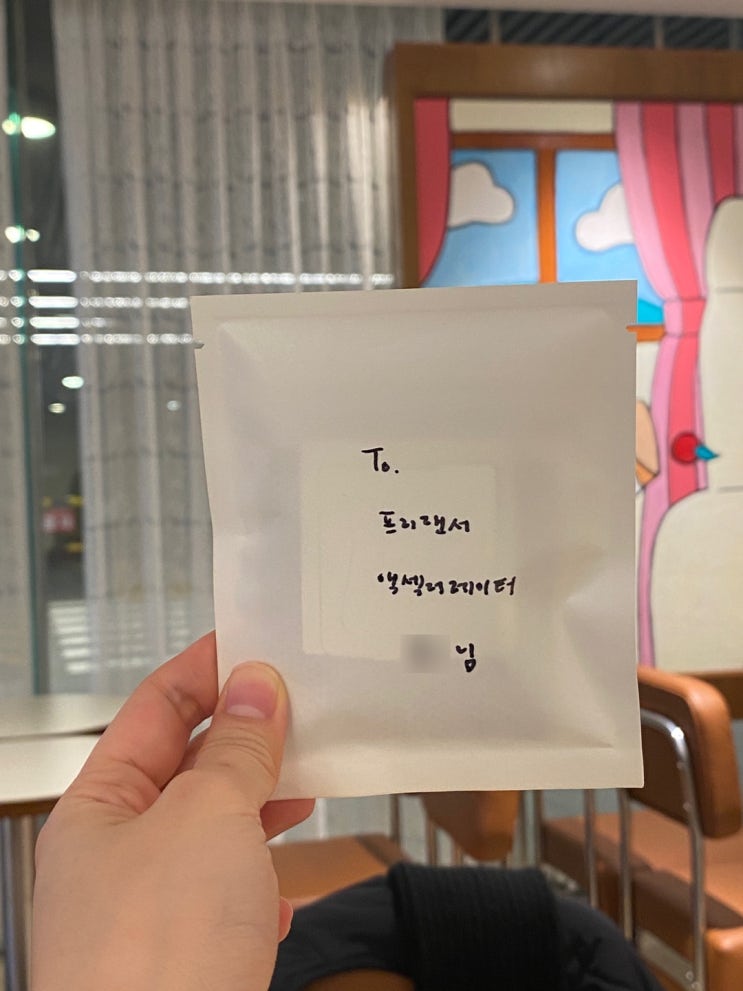 To.
프리랜서
액셀러레이터
님